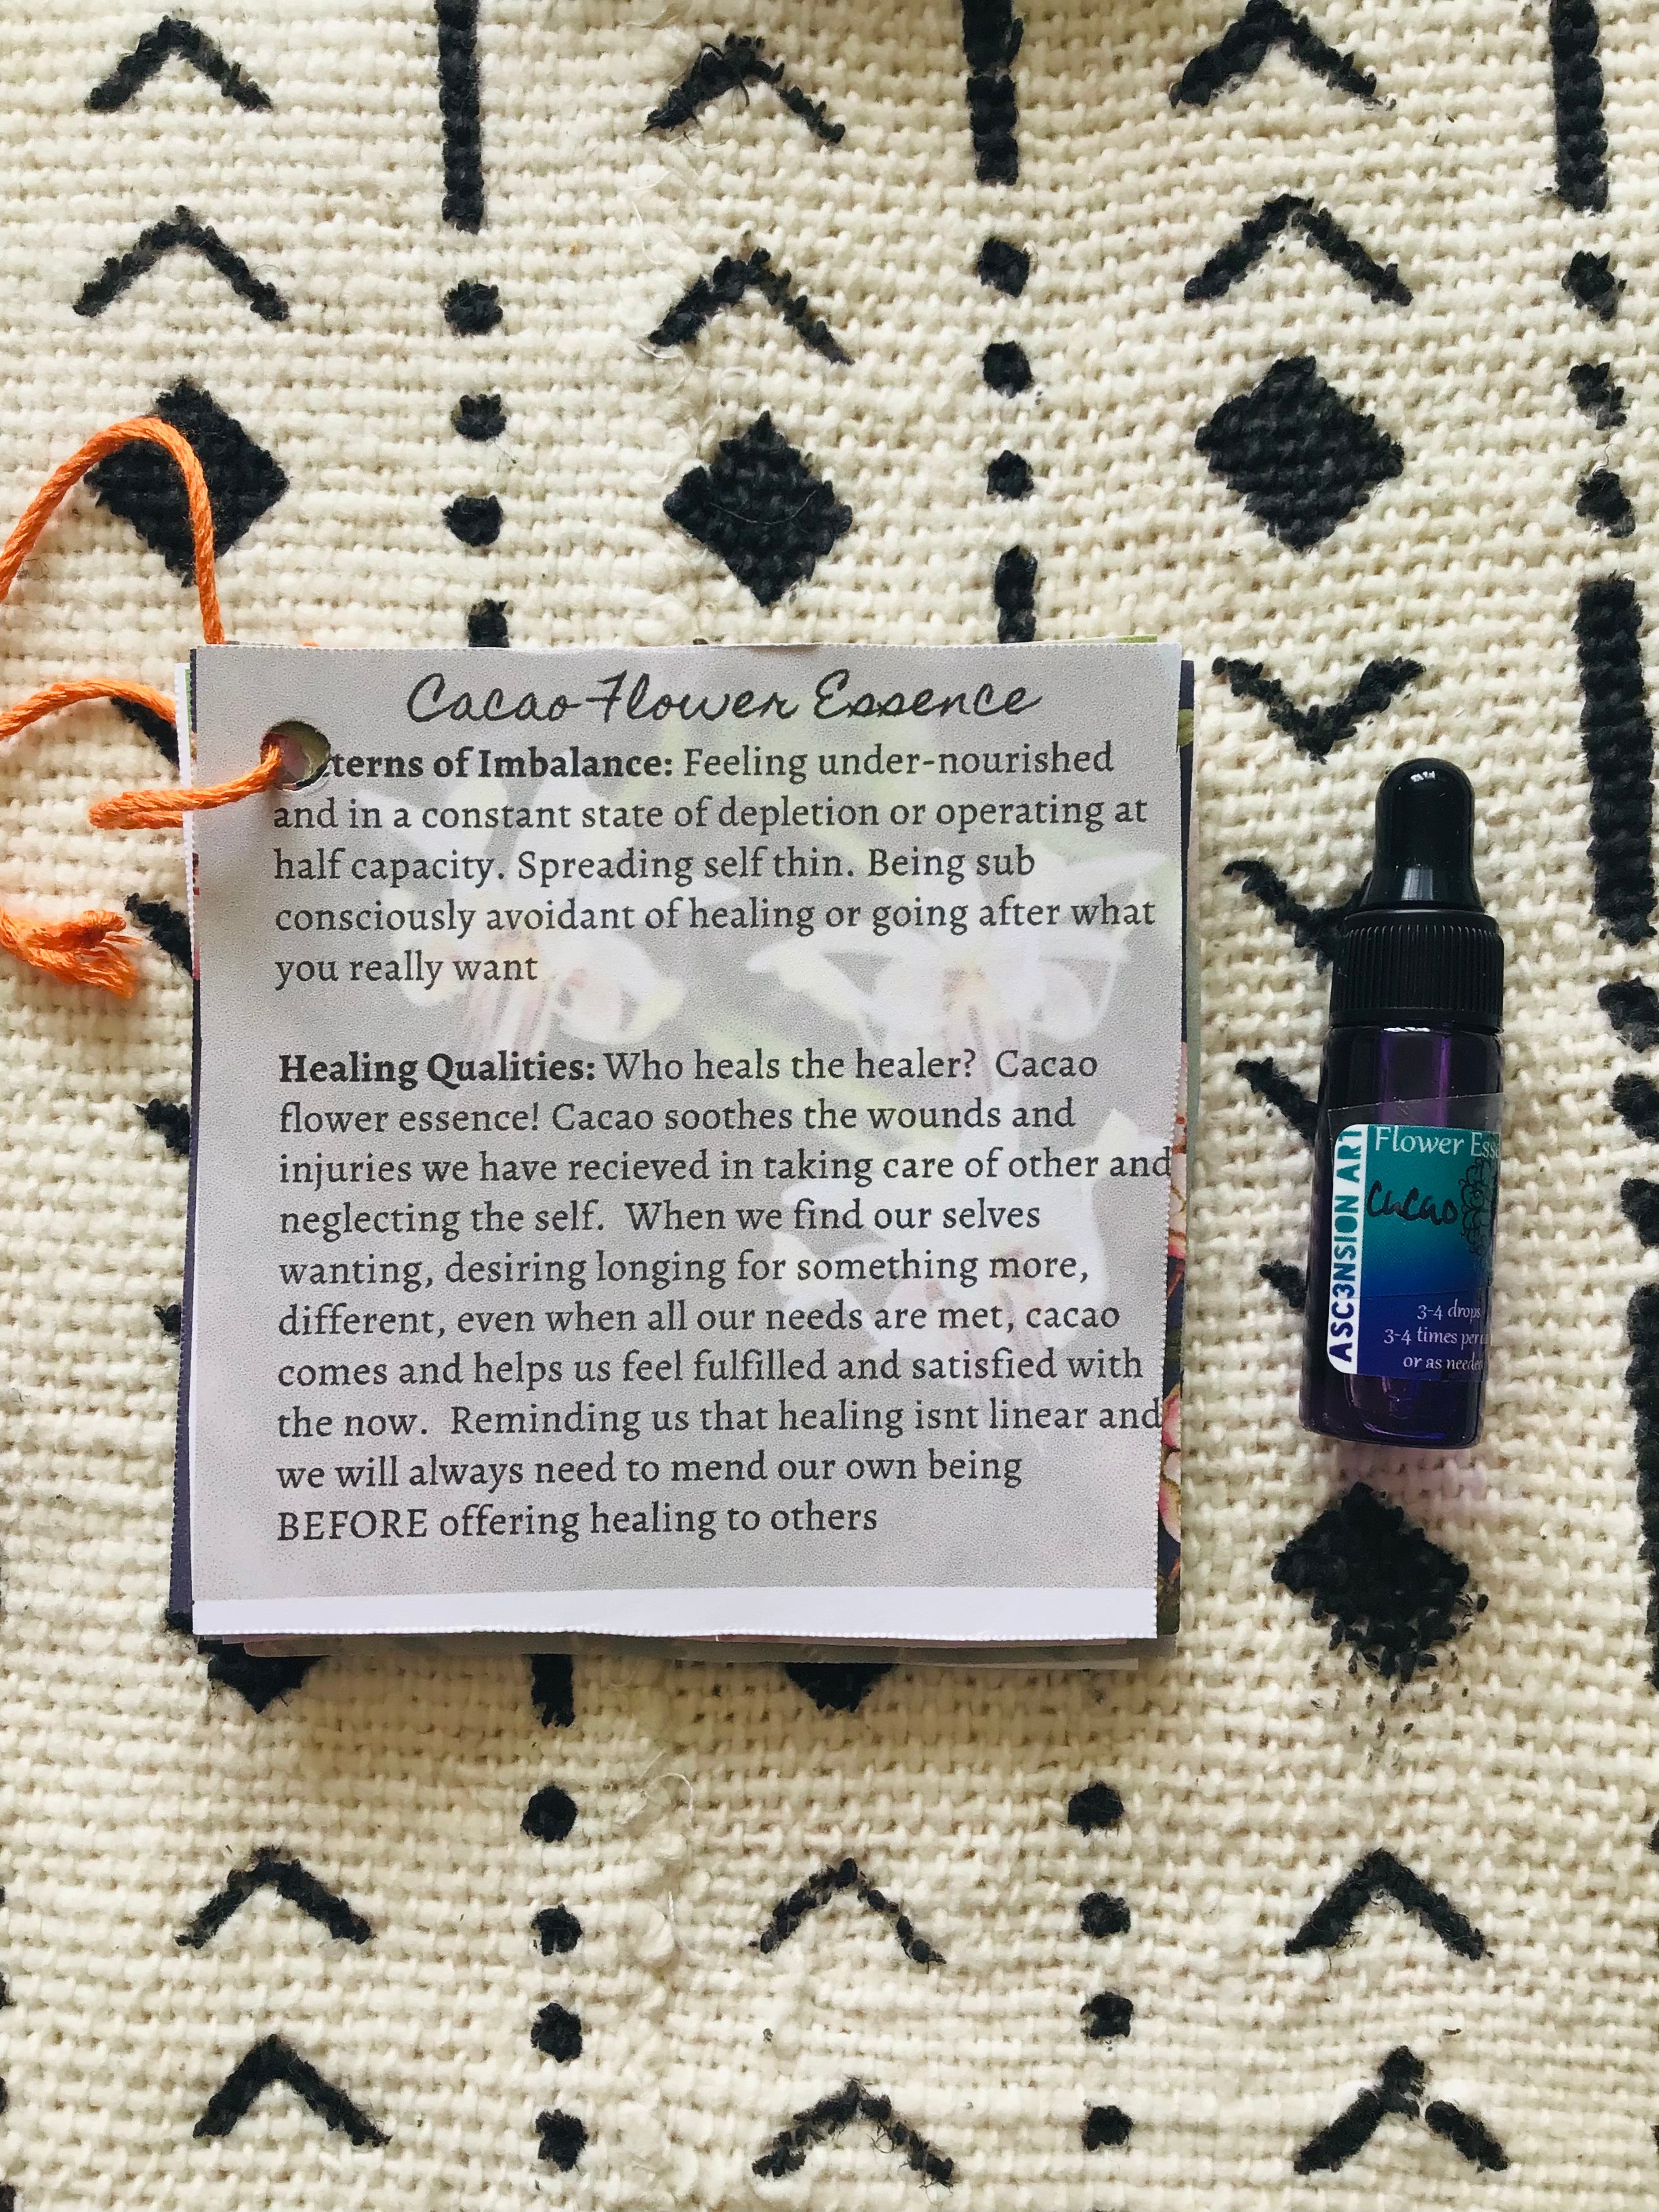 Cacao Flower Essence
terns of Imbalance: Feeling under-nourished
and in a constant state of depletion or operating at
half capacity. Spreading self thin. Being sub
consciously avoidant of healing or going after what
you really want
Healing Qualities: Who heals the healer? Cacao
flower essence! Cacao soothes the wounds and
injuries we have recieved in taking care of other and
neglecting the self. When we find our selves
wanting, desiring longing for something more,
different, even when all our needs are met, cacao
comes and helps us feel fulfilled and satisfied with
the now. Reminding us that healing isnt linear and
we will always need to mend our own being
BEFORE offering healing to others
ASC3NSION ART
Flower
cacao
3-4 drops
3-4 times per
or as